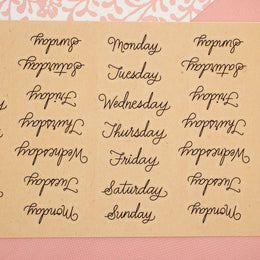 Sunday
Saturday
Friday
Thursday
Wednesday
Tuesday
Monday
Monday
Tuesday
Wednesday
Thursday
Friday
Saturday
Sunday
Sunday
Saturday
Friday
Thursday
Wednesday
Tuesday
Monday